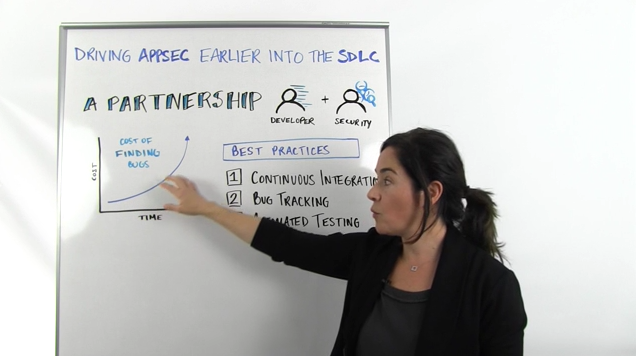 DRIVING APPSEC EARLIER INTO THE SDLC
A PARTNERSHIP
DEVELOPER + SECURITY
COST OF
FINDING
BUGS
COST
TIME
BEST PRACTICES
1 CONTINUOUS INTEGRATION
2 BUG TRACKING
TESTING